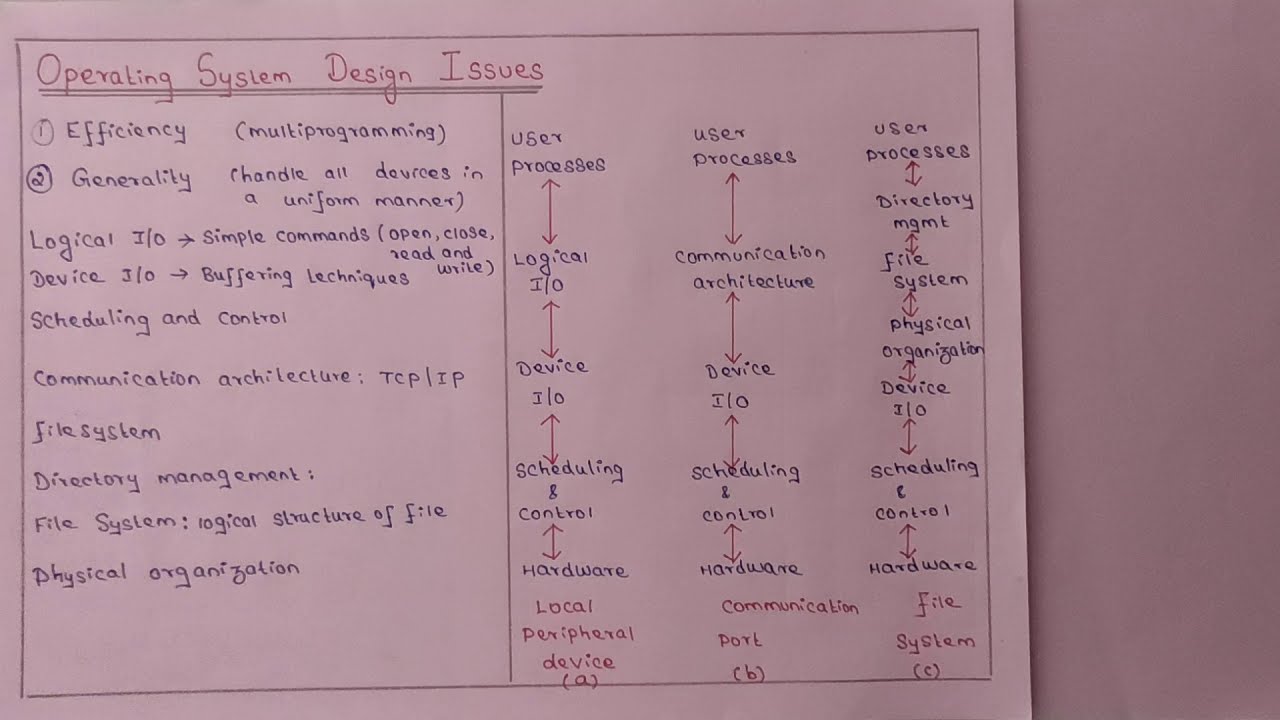 Operating System Design Issues
① Efficiency (multiprogramming)
② Generality (handle all devices in
a uniform manner)
Logical I/O → Simple commands (open, close,
read and
write)
Device I/O → Buffering techniques
Scheduling and Control
Communication architecture: TCP/IP
filesystem
Directory management:
File System: logical structure of file
Physical organization
user
processes
Logical
I/O
Device
I/O
Scheduling
&
Control
Hardware
Local
Peripheral
device
(a)
user
processes
Communication
architecture
Device
I/O
Scheduling
&
Control
Hardware
Communication
Port
(b)
user
processes
Directory
mgmt
file
System
Physical
organization
Device
I/O
Scheduling
&
Control
Hardware
file
System
(c)